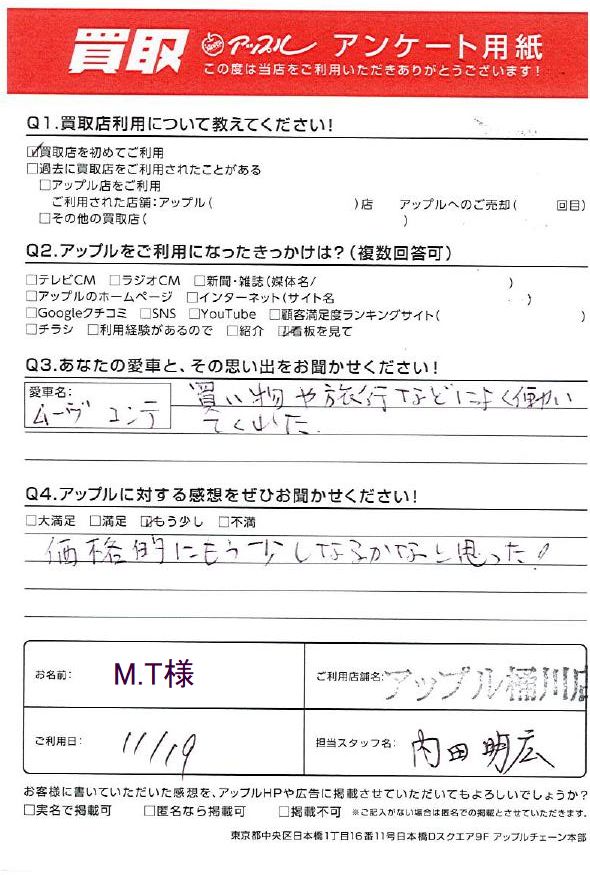 買取 アップル アンケート用紙
この度は当店をご利用いただきありがとうございます!
Q1.買取店利用について教えてください!
☑買取店を初めてご利用
□過去に買取店をご利用されたことがある
□アップル店をご利用
ご利用された店舗:アップル( )店 アップルへのご売却( 回目)
□その他の買取店( )
Q2.アップルをご利用になったきっかけは?(複数回答可)
□テレビCM □ラジオCM □新聞・雑誌(媒体名/ )
□アップルのホームページ □インターネット(サイト名 )
□Googleクチコミ □SNS □YouTube □顧客満足度ランキングサイト( )
□チラシ □利用経験があるので □紹介 ☑看板を見て
Q3.あなたの愛車と、その思い出をお聞かせください!
愛車名:
ムーヴ コンテ
買い物や旅行などによく働い
てくれた.
Q4.アップルに対する感想をぜひお聞かせください!
□大満足 □満足 ☑もう少し □不満
価格的にもう少しなるかなと思った!
お名前: M.T様
ご利用店舗名: アップル桶川店
ご利用日: 11/19
担当スタッフ名: 内田明広
お客様に書いていただいた感想を、アップルHPや広告に掲載させていただいてもよろしいでしょうか?
□実名で掲載可 □匿名なら掲載可 □掲載不可 ※ご記入がない場合は匿名での掲載とさせていただきます。
東京都中央区日本橋1丁目16番11号日本橋Dスクエア9F アップルチェーン本部